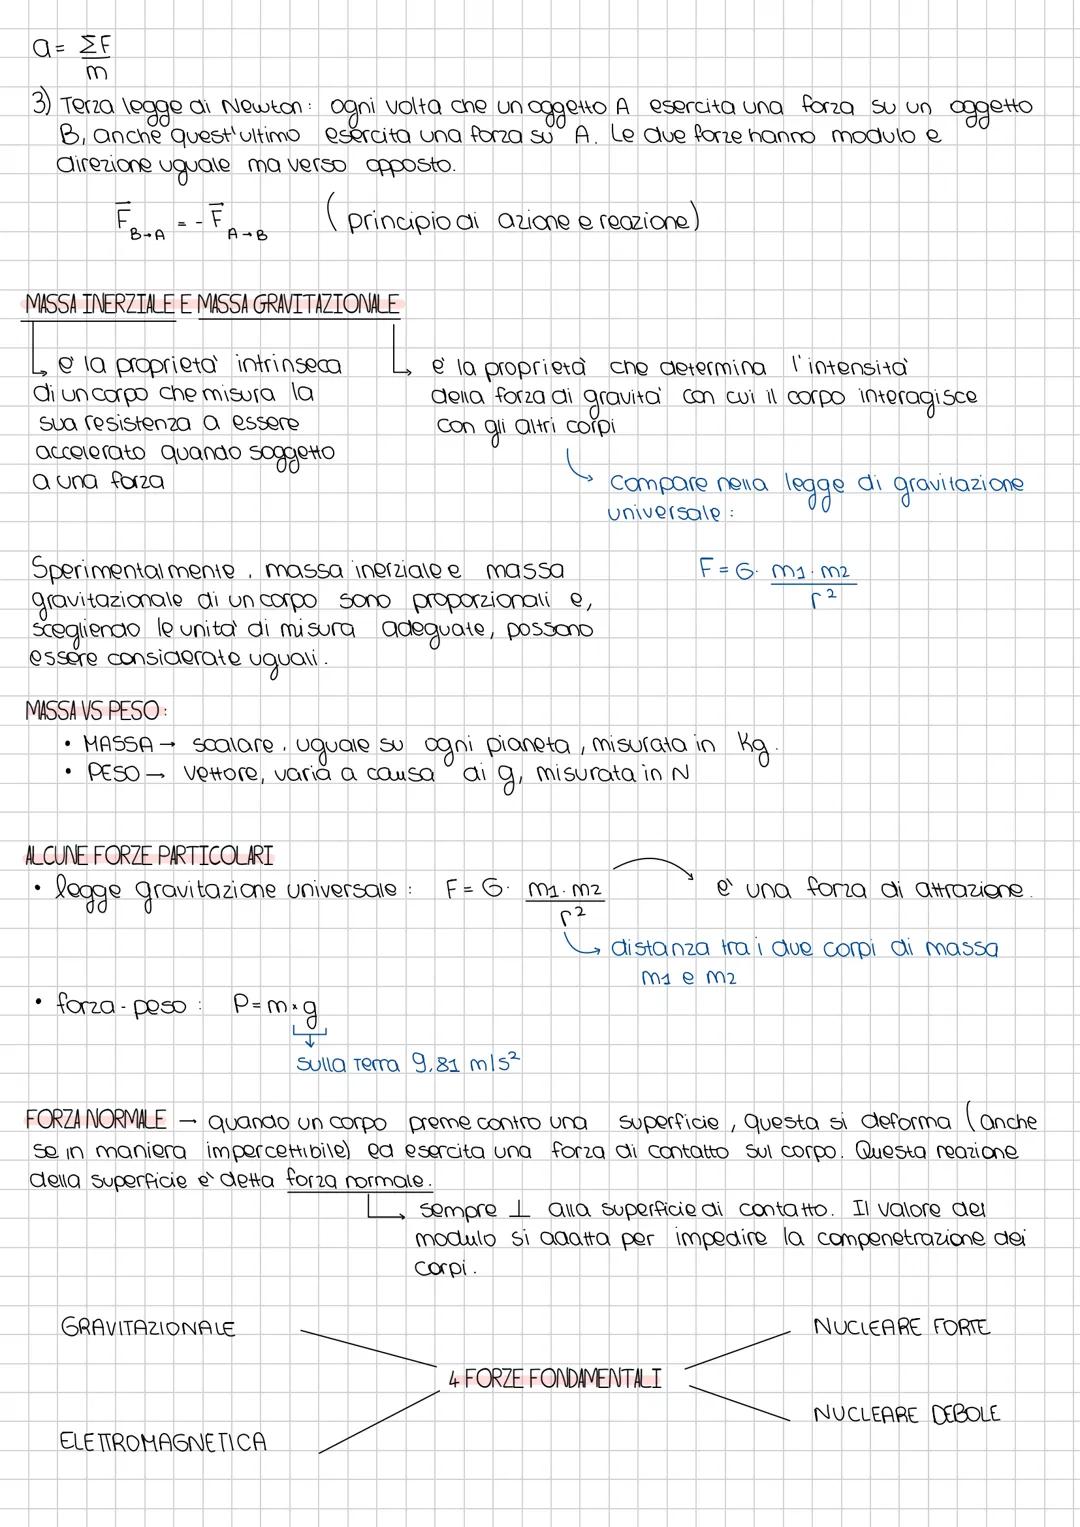 a = ΣF
m
3) Terza legge di Newton: ogni volta che un oggetto A esercita una forza su un oggetto
B, anche quest'ultimo esercita una forza su A. Le due forze hanno modulo e
direzione uguale ma verso opposto.
F⃗ B→A = - F⃗ A→B (principio di azione e reazione)
MASSA INERZIALE E MASSA GRAVITAZIONALE
e' la proprieta' intrinseca
di un corpo che misura la
sua resistenza a essere
accelerato quando soggetto
a una forza
e' la proprietà che determina l'intensita'
della forza di gravita' con cui il corpo interagisce
con gli altri corpi
compare nella legge di gravitazione
universale:
Sperimentalmente, massa inerziale e massa
gravitazionale di un corpo sono proporzionali e,
scegliendo le unita' di misura adeguate, possono
essere considerate uguali.
F = G · m1 · m2
r²
MASSA VS PESO:
• MASSA → scalare, uguale su ogni pianeta, misurata in Kg.
• PESO → vettore, varia a causa di g, misurata in N
ALCUNE FORZE PARTICOLARI
• legge gravitazione universale: F = G · m1 · m2 e' una forza di attrazione.
r²
distanza tra i due corpi di massa
m1 e m2
• forza-peso: P = m × g
sulla Terra 9,81 m/s²
FORZA NORMALE → quando un corpo preme contro una superficie, questa si deforma (anche
se in maniera impercettibile) ed esercita una forza di contatto sul corpo. Questa reazione
della superficie e' detta forza normale.
sempre ⊥ alla superficie di contatto. Il valore del
modulo si adatta per impedire la compenetrazione dei
corpi.
GRAVITAZIONALE NUCLEARE FORTE
4 FORZE FONDAMENTALI
NUCLEARE DEBOLE
ELETTROMAGNETICA